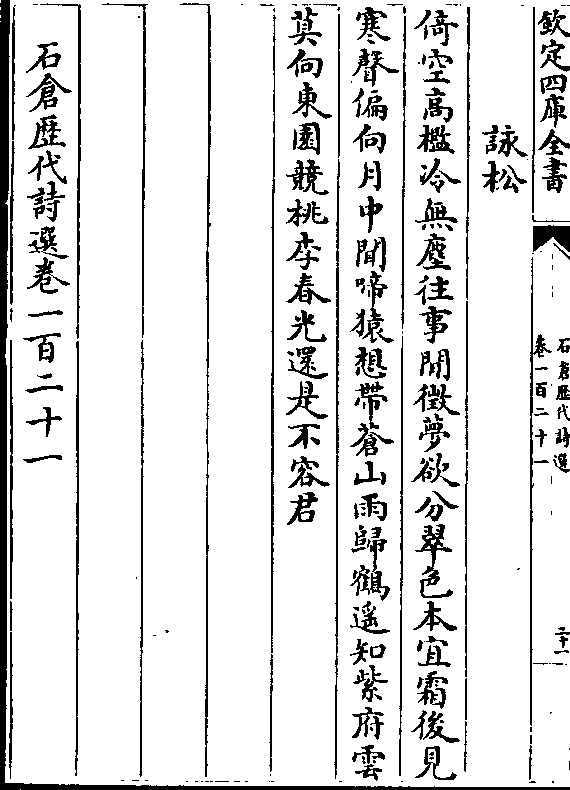 欽定四庫全書
石倉歷代詩選
卷一百二十一
二十一
詠松
倚空高檻冷無塵往事閒徵夢欲分翠色本宜霜後見
寒聲偏向月中聞啼猿想帶蒼山雨歸鶴遥知紫府雲
莫向東園競桃李春光還是不容君
石倉歷代詩選卷一百二十一